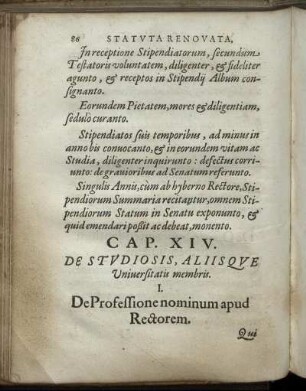 86 STATVTA RENOVATA,
In receptione Stipendiatorum, secundum
Testatoris voluntatem, diligenter, & fideliter
agunto, & receptos in Stipendij Album con-
signanto.
Eorundem Pietatem, mores & diligentiam,
sedulo curanto.
Stipendiatos suis temporibus, ad minus in
anno bis convocanto, & in eorundem vitam ac
Studia, diligenter inquirunto: defectus corri-
unto: de grauioribus ad Senatum referunto.
Singulis Annis, cùm ab hyberno Rectore, Sti-
pendiorum Summaria recitantur, omnem Sti-
pendiorum Statum in Senatu exponunto, &
quid emendari possit ac debeat, monento.
CAP. XIV.
DE STVDIOSIS, ALIISQVE
Vniuersitatis membris.
I.
De Professione nominum apud
Rectorem.
Qui